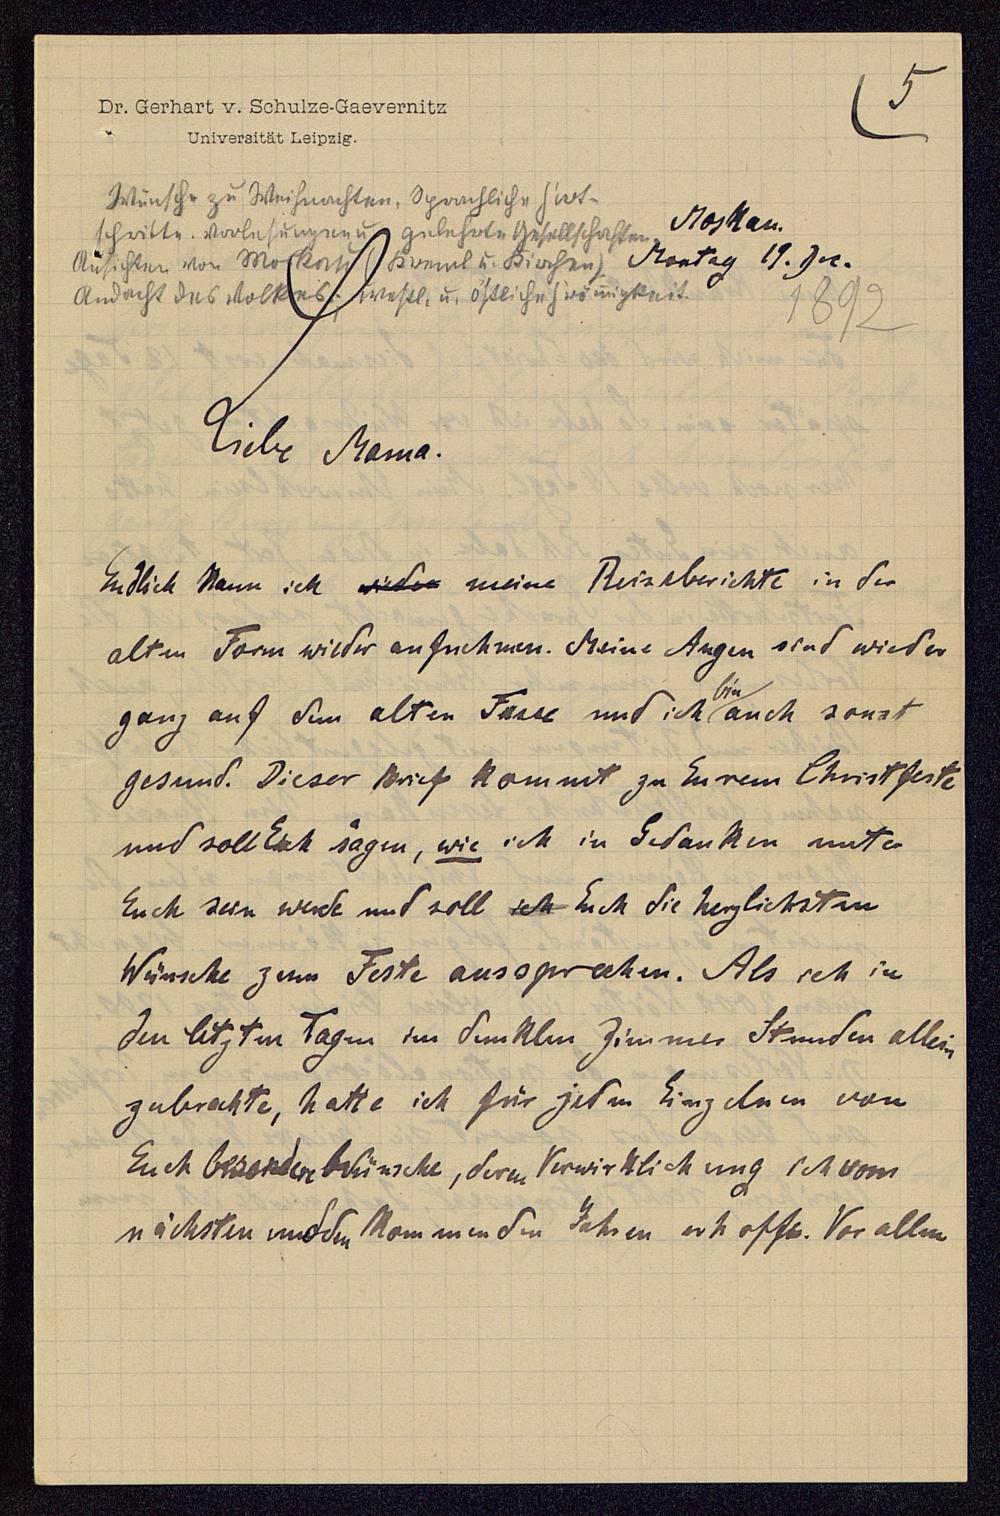 5
Dr. Gerhart v. Schulze-Gaevernitz
Universität Leipzig.
Wünsche zu Weihnachten, Sprachliche Fort-
schritte. Vorlesungen u. gelehrte Gesellschaften,
Ansichten von Moskau (Kreml u. Kirchen)
Andacht des Volkes, westl. u. östliche Frömmigkeit.
Moskau.
Montag 19. Dec.
1892
Liebe Mama.
Endlich kann ich wieder meine Reiseberichte in der
alten Form wieder aufnehmen. Meine Augen sind wieder
ganz auf dem alten Fusse und ich bin auch sonst
gesund. Dieser Brief kommt zu Eurem Christfeste
und soll Euch sagen, wie ich in Gedanken unter
Euch sein werde und soll ich Euch die herzlichsten
Wünsche zum Feste aussprechen. Als ich in
den letzten Tagen im dunklen Zimmer Stunden allein
zubrachte, hatte ich für jeden Einzelnen von
Euch besondere Wünsche, deren Verwirklichung ich vom
nächsten und den kommenden Jahren erhoffe. Vor allem